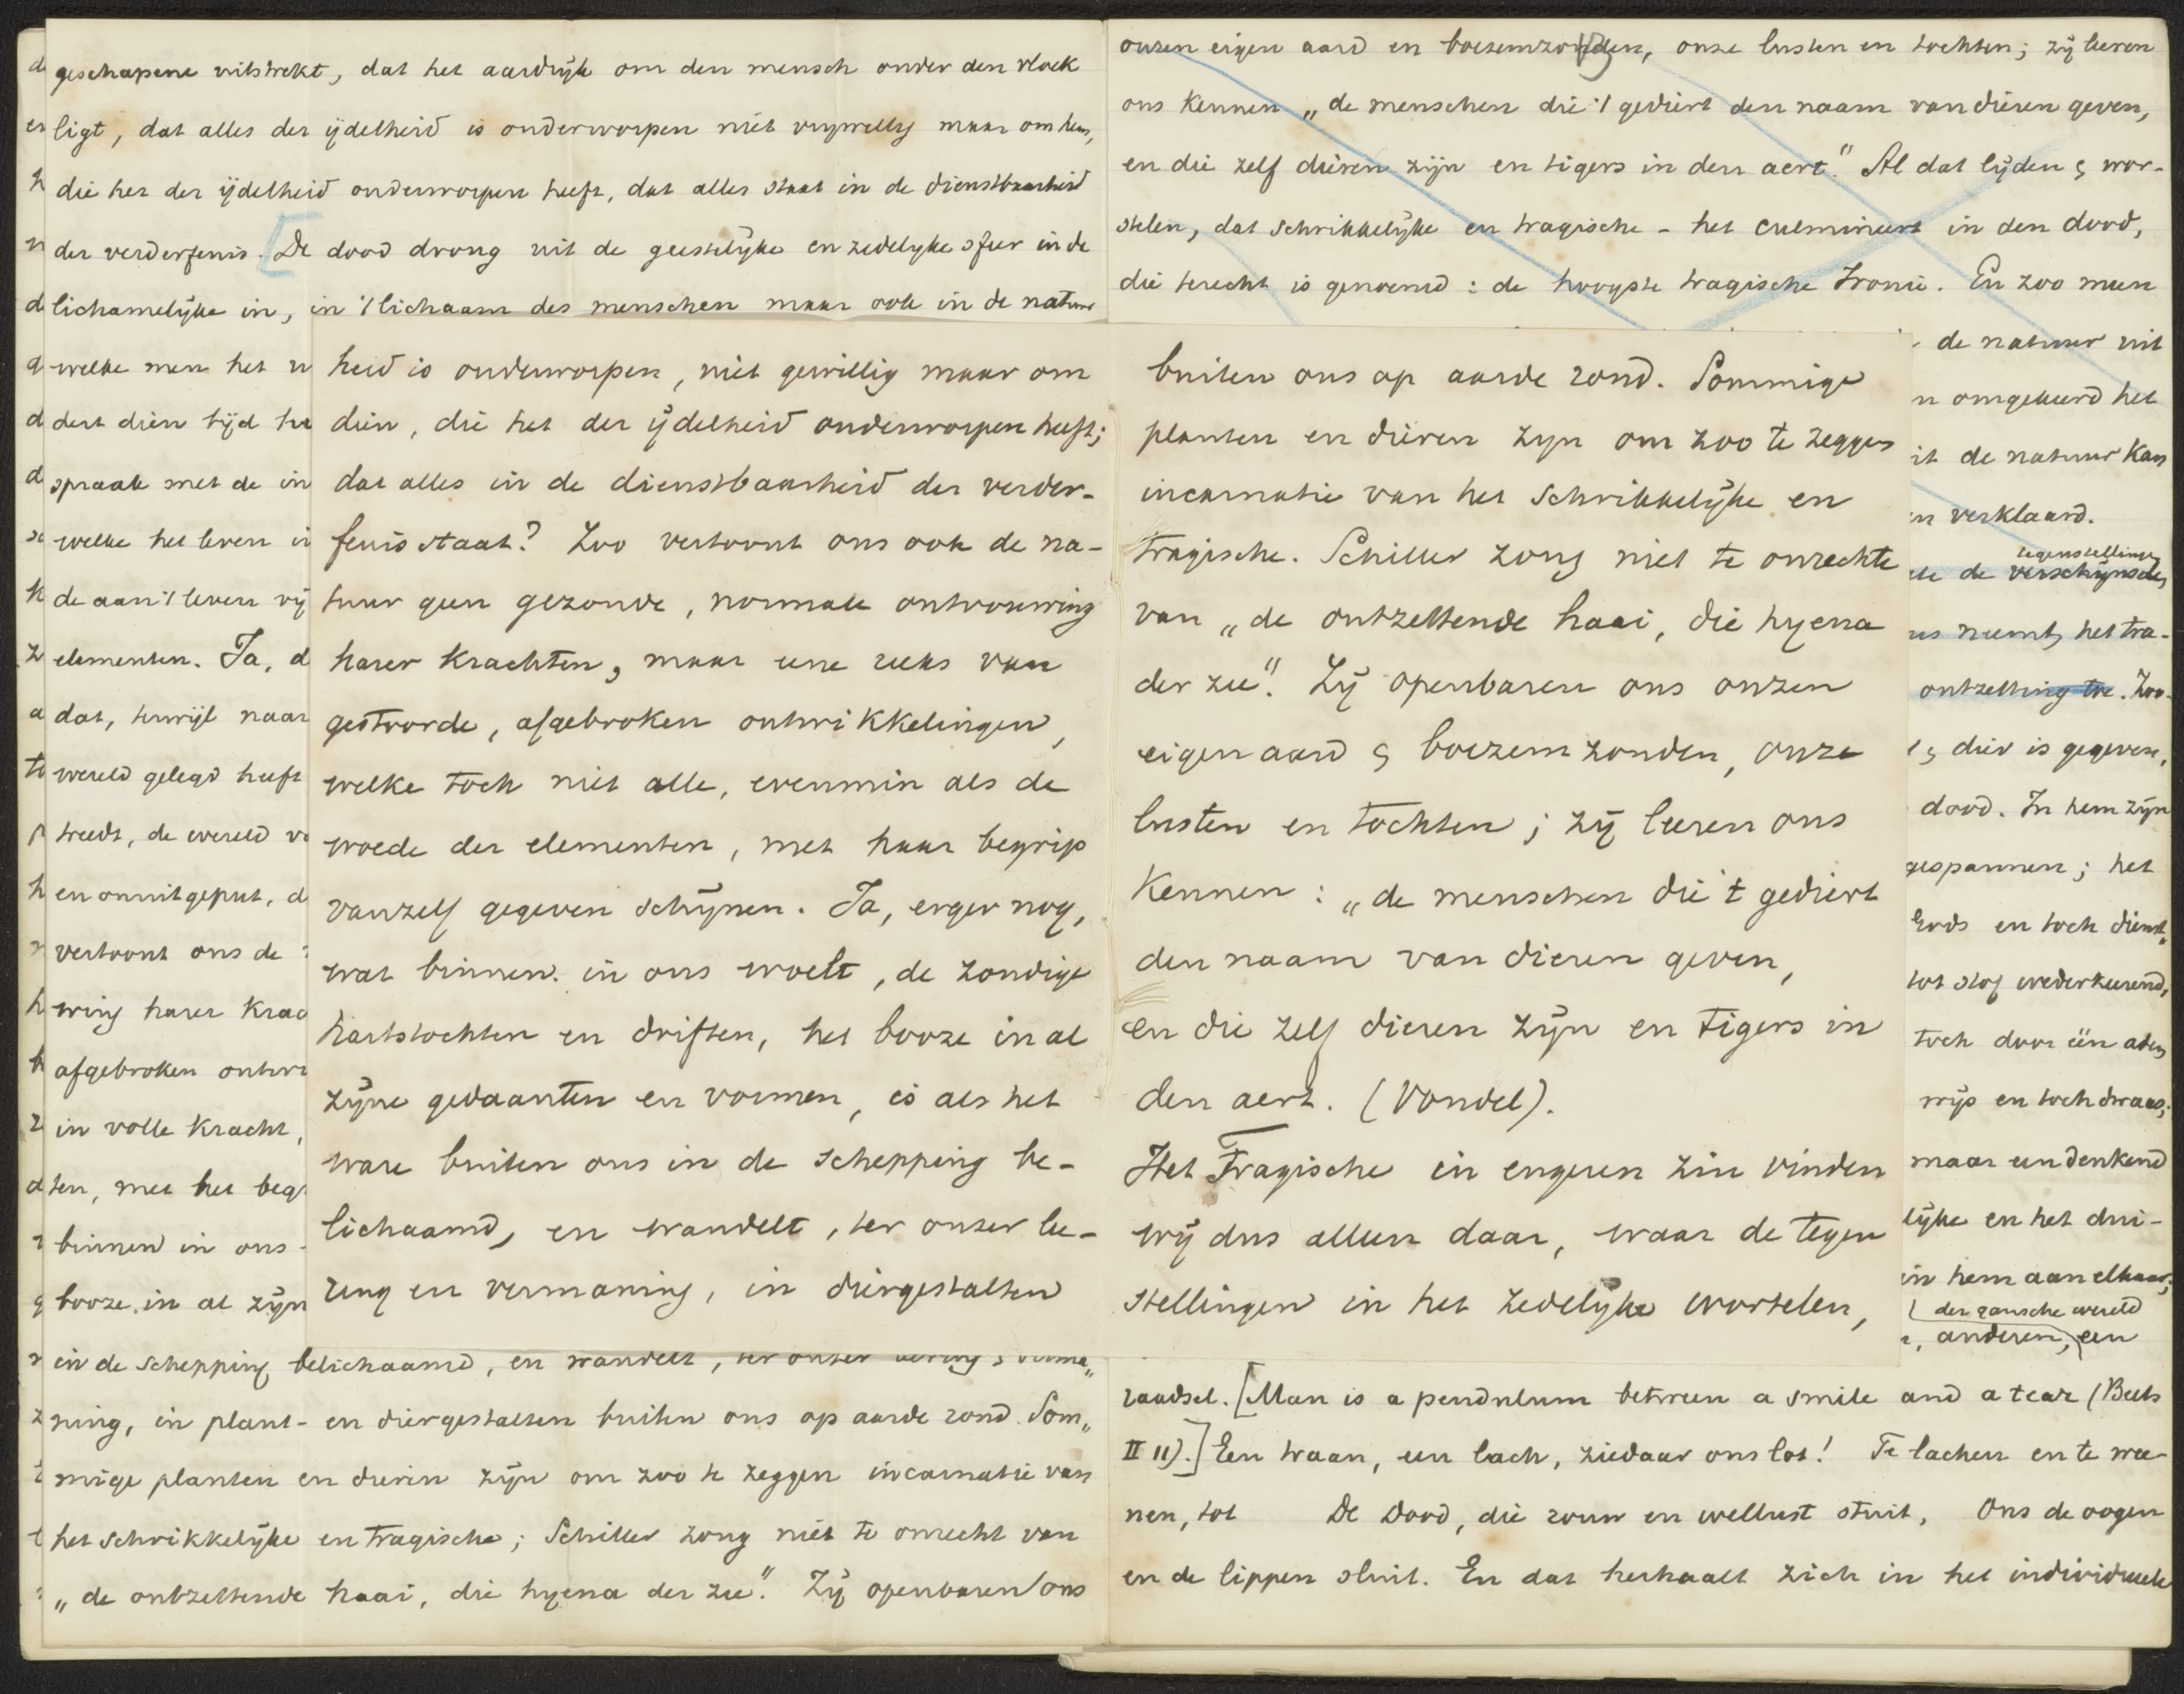 geschapene uitstrekt, dat het aardrijk om den mensch onder den vloek
ligt, dat alles der ijdelheid is onderworpen niet vrijwillig maar om hem,
die het der ijdelheid onderworpen heeft, dat alles staat in de dienstbaarheid
der verderfenis. [De dood drong uit de geestelijke en zedelijke sfeer in de
lichamelijke in, in 't lichaam des menschen maar ook in de natuur
welke men het
dert dien tijd
spraak met de in
welke het leven
de aan 't leven vij
elementen. Ja, d
dat, terwijl naar
wereld gelegd heeft
treedt, de wereld
en onuitgeput, d
vertoont ons de
wing harer Krac
afgebroken ontwi
in volle Kracht,
ten, met het beg
binnen in ons
booze in al zijn
in de schepping belichaamd, en wandelt, ter onzer leering & verma„
ning, in plant- en diergestalten buiten ons op aarde rond. Som„
mige planten en dieren zijn om zoo te zeggen incarnatie van
het schrikkelijke en tragische; Schiller zong niet te onrecht van
„de ontzettende haai, die hyena der zee". Zij openbaren ons
heid is onderworpen, niet gewillig maar om
dien, die het der ijdelheid onderworpen heeft;
dat alles in de dienstbaarheid der verder-
fenis staat? Zoo vertoont ons ook de na-
tuur geen gezonde, normale ontvouwing
harer Krachten, maar eene reeks van
gestoorde, afgebroken ontwikkelingen,
welke toch niet alle, evenmin als de
woede der elementen, met haar begrip
vanzelf gegeven schijnen. Ja, erger nog,
wat binnen in ons woelt, de zondige
hartstochten en driften, het booze in al
zijne gedaanten en vormen, is als het
ware buiten ons in de schepping be-
lichaamd, en wandelt, ter onzer lee-
ring en vermaning, in diergestalten
onzen eigen aard en boezemzonden, onze lusten en tochten; zij leeren
ons Kennen „de menschen die 't gediert den naam van dieren geven,
en die zelf dieren zijn en tigers in den aert." Al dat lijden & wor-
stelen, dat schrikkelijke en tragische - het culmineert in den dood,
die terecht is genoemd: de hoogste tragische Ironie. En zoo men
buiten ons op aarde rond. Sommige
planten en dieren zijn om zoo te zeggen
incarnatie van het schrikkelijke en
tragische. Schiller zong niet te onrechte
van „de ontzettende haai, die hyena
der zee". Zij openbaren ons onzen
eigen aard & boezemzonden, onze
lusten en tochten; zij leeren ons
Kennen: „de menschen die 't gediert
den naam van dieren geven,
en die zelf dieren zijn en tigers in
den aert. (Vondel).
Het Tragische in engeren zin vinden
wij dus alleen daar, waar de tegen
stellingen in het zedelijke wortelen,
de natuur uit
omgekeerd het
it de natuur Kan
verklaard.
tegenstellingen
de verschijnselen
neemt, het tra-
ontzetting toe. Zoo-
& dier is gegeven,
dood. In hem zijn
gespannen; het
Gods en toch dienst„
tot stof wederkeerend,
toch door één adem
wijs en toch dwaas;
maar een denkend
lijke en het dui-
in hem aan elkaar;
der gansche wereld
anderen, een
raadsel. [Man is a pendulum between a smile and a tear (Beets
II 11).] Een traan, een lach, ziedaar ons lot! Te lachen en te wee-
nen, tot De Dood, die rouw en wellust stuit, Ons de oogen
en de lippen sluit. En dat herhaalt zich in het individueele